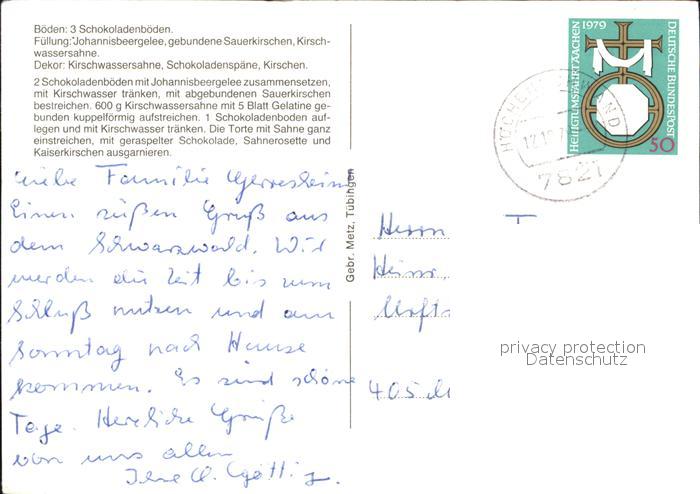 Böden: 3 Schokoladenböden.
Füllung: Johannisbeergelee, gebundene Sauerkirschen, Kirsch-
wassersahne.
Dekor: Kirschwassersahne, Schokoladenspäne, Kirschen.
2 Schokoladenböden mit Johannisbeergelee zusammensetzen,
mit Kirschwasser tränken, mit abgebundenen Sauerkirschen
bestreichen. 600 g Kirschwassersahne mit 5 Blatt Gelatine ge-
bunden kuppelförmig aufstreichen. 1 Schokoladenboden auf-
legen und mit Kirschwasser tränken. Die Torte mit Sahne ganz
einstreichen, mit geraspelter Schokolade, Sahnerosette und
Kaiserkirschen ausgarnieren.
Liebe Familie Gerresheim
Einen süßen Gruß aus
dem Schwarzwald. Wir
werden die Zeit bis zum
Schluß nutzen und am
Sonntag nach Hause
kommen. Es sind schöne
Tage. Herzliche Grüße
von uns allen
Gebr. Metz, Tübingen
1979
HEILIGTUMSFAHRT AACHEN
DEUTSCHE BUNDESPOST
50
7821
Herrn
Heinr.
405
privacy protection
Datenschutz